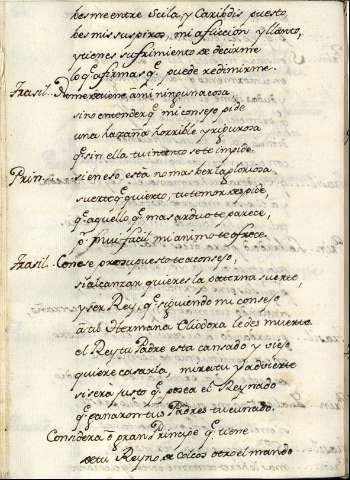 besme entre Scila, y Caribdis puesto
bes mis suspiros, mi aflicción y llanto,
y tienes sufrimiento de decirme
lo q̃ afirmas q̃ puede redimirme.
Trasil. No me detiene a mi ninguna cosa
sino entender q̃ mi consejo pide
una hazaña horrible y rigurosa
q̃ sin ella tu intento se te impide
Prin. si en eso está no mas ber la gloriosa
suerte q̃ quiero, tu temor despide,
q̃ aquello q̃ mas arduo te parece,
muy facil mi animo te ofrece
Trasil. Con ese presupuesto te aconsejo,
si alcanzar quieres la paterna suerte,
y ser Rey, q̃ siguiendo mi consejo
a tu Hermana Cliodora le des muerte
el Rey tu Padre esta cansado y viejo
quiere casarla, mira tu y advierte
si será justo q̃ posea el Reynado
q̃ ganaron tus Padres tu cuñado.
Considera ò gran Principe q̃ tiene
de tu Reyno de Colcos otro el mando